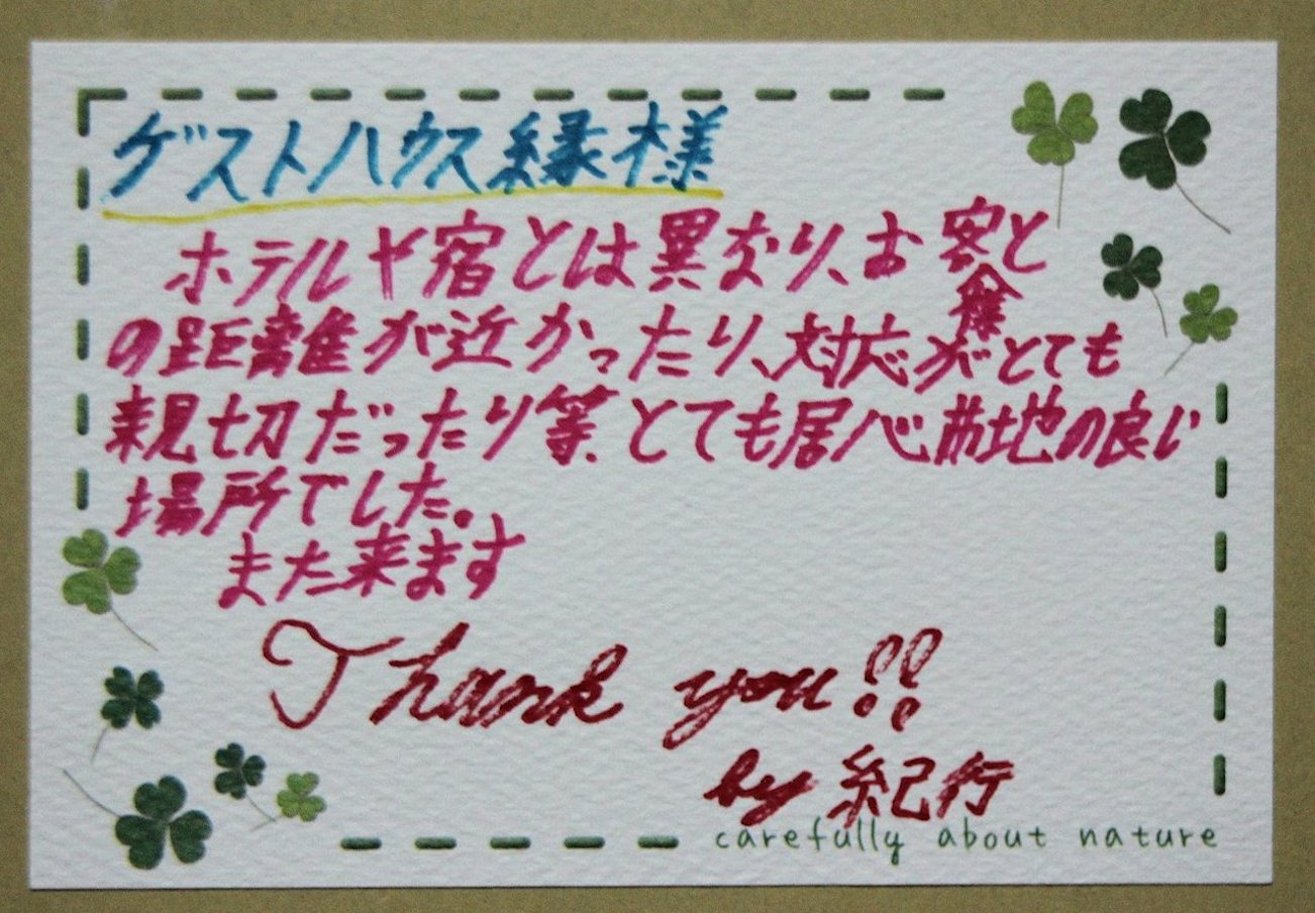 ゲストハウス縁様
ホテルや宿とは異なり、お客様と
の距離が近かったり、対応がとても
親切だったり等、とても居心地の良い
場所でした。
また来ます
Thank you!!
by 紀行
carefully about nature